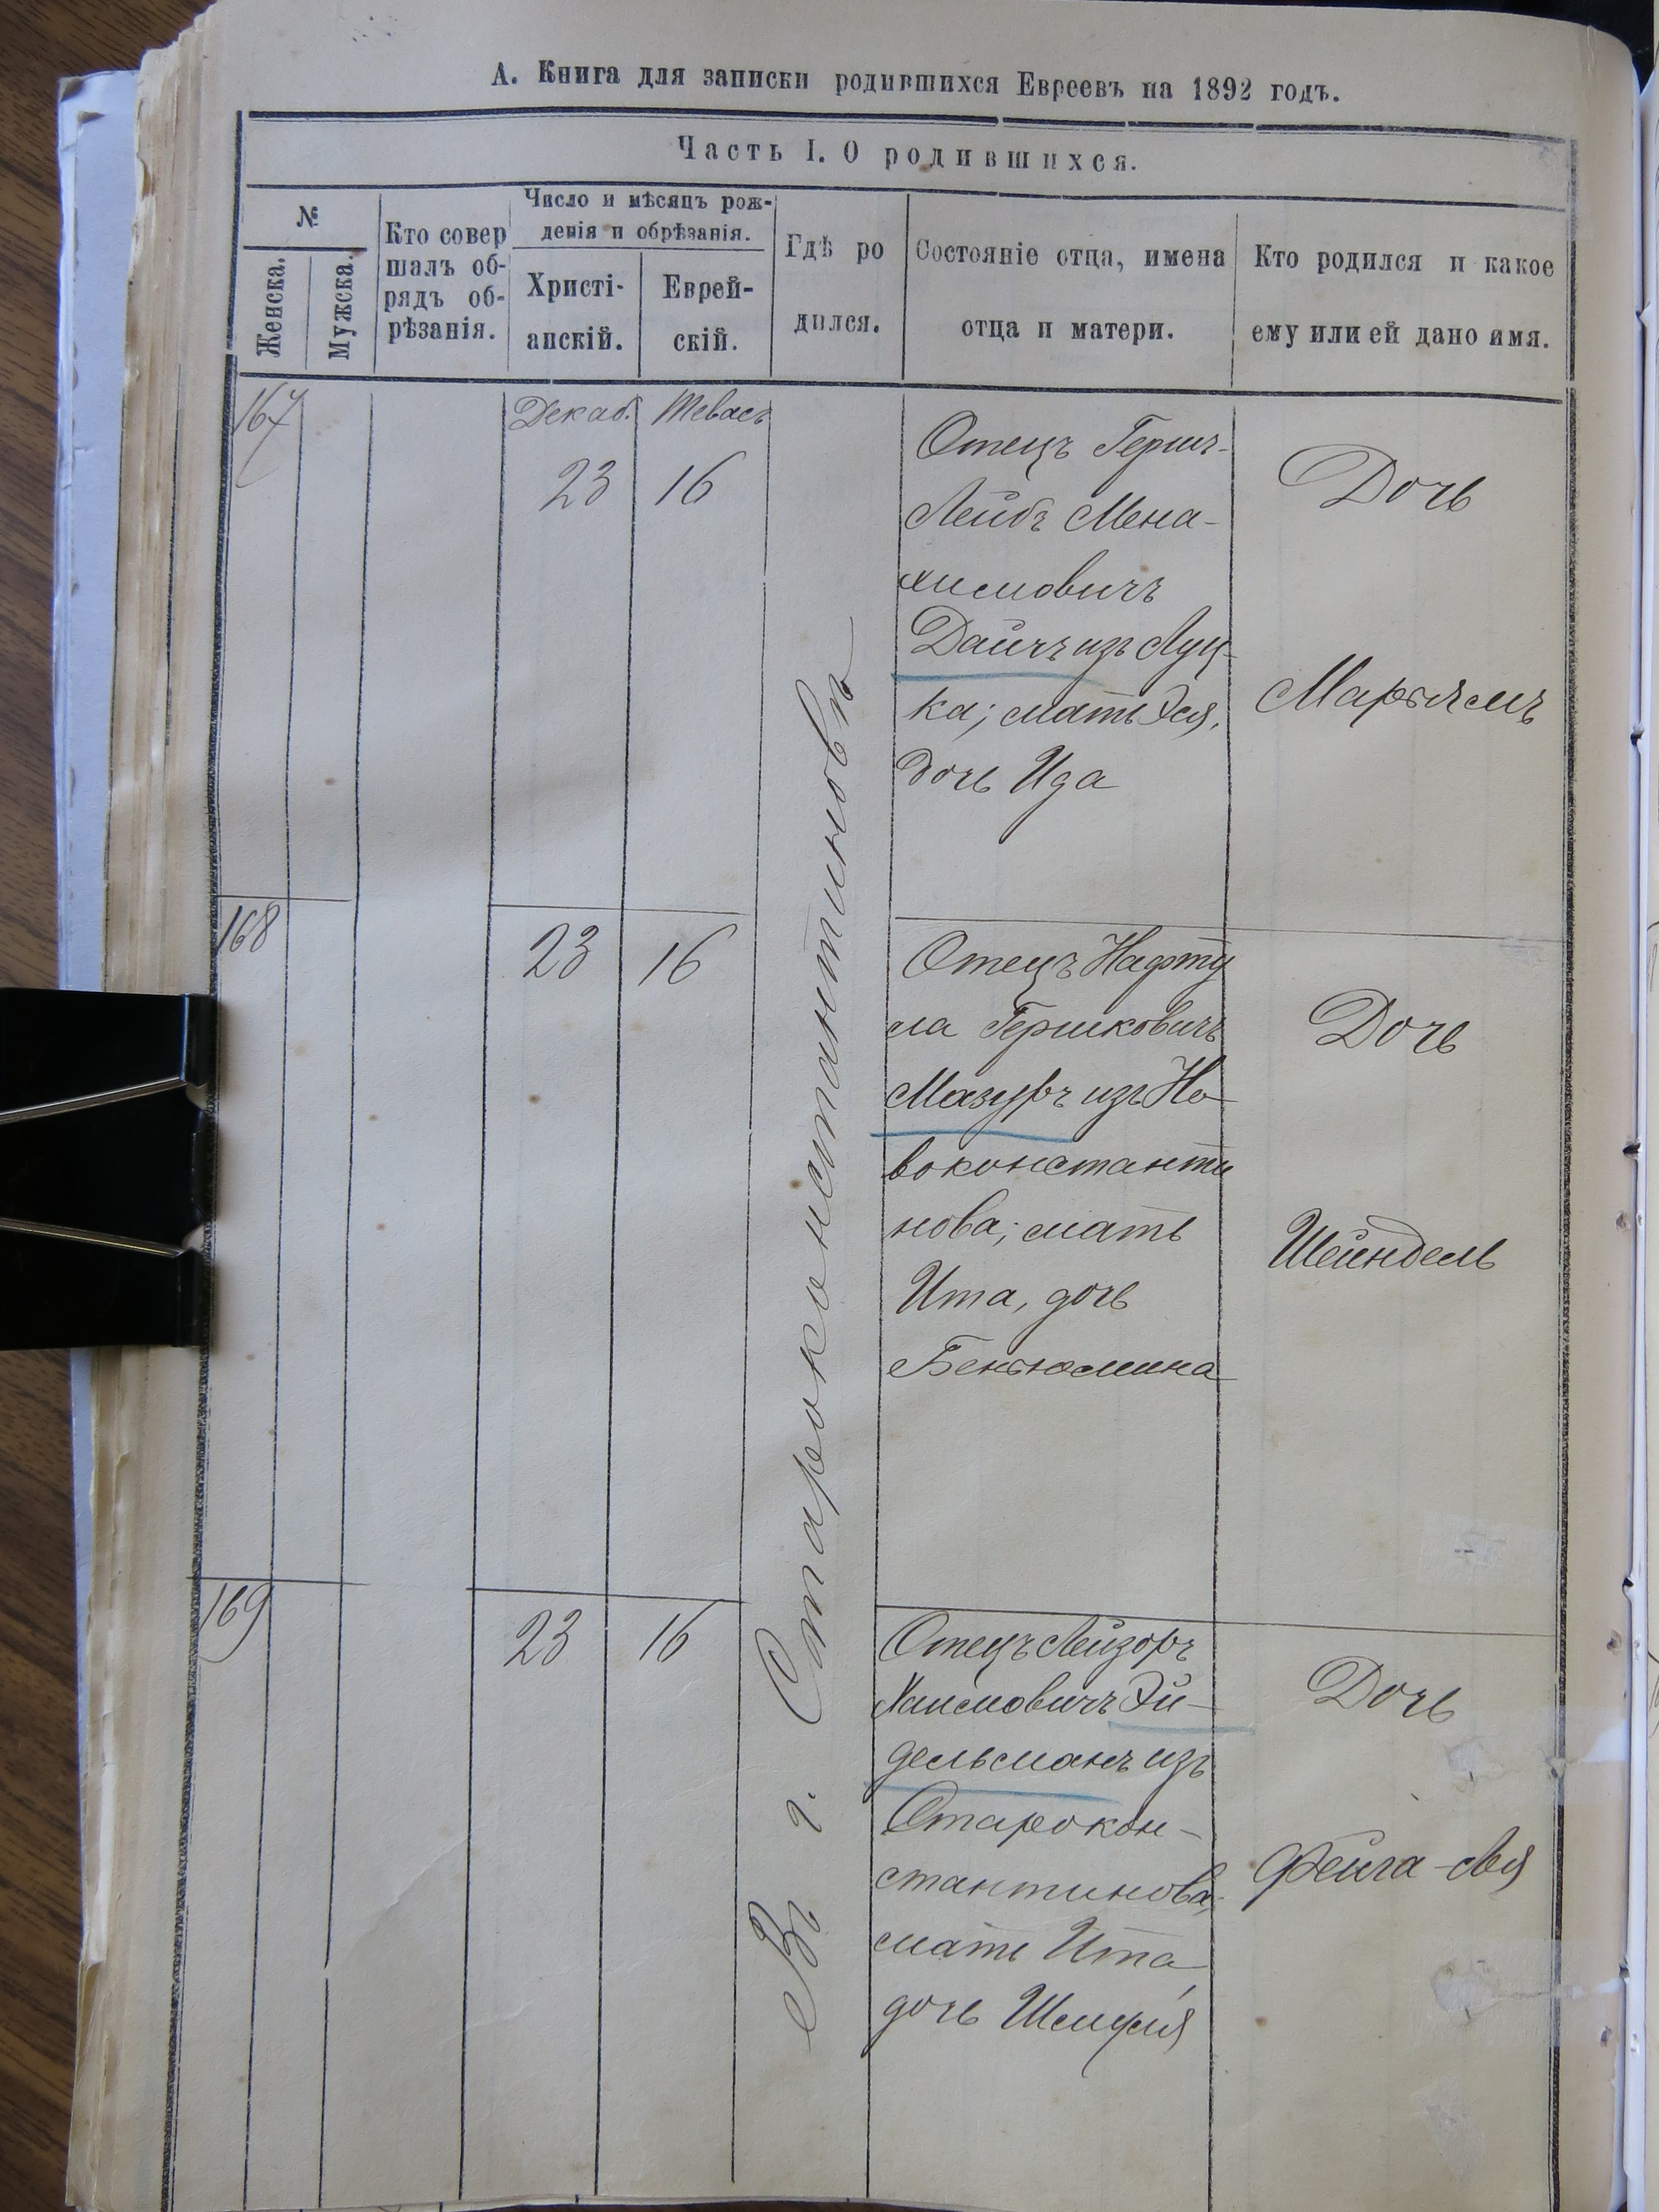 А. Книга для записки родившихся Евреевъ на 1892 годъ.
Часть I. О родившихся.
№
Женска.
Мужска.
Кто совер
шалъ об-
рядъ об-
рѣзанія.
Число и мѣсяцъ рож-
денія и обрѣзанія.
Христі-
анскій.
Еврей-
скій.
Гдѣ ро
дился.
Состояніе отца, имена
отца и матери.
Кто родился и какое
ему или ей дано имя.
167
Декаб.
23
Тевасъ
16
Отецъ Гершъ-
Лейбъ Мена-
химовичъ
Дайчъ изъ Луц-
ка; мать Эся,
дочь Ида
Дочь
Марьямъ
168
23
16
Отецъ Нафту
ла Гершковичъ
Мазуръ изъ Но-
воконстанти
нова; мать
Ита, дочь
Беньюмина
Дочь
Шейндель
169
23
16
Отецъ Лейзоръ
Хаимовичъ Эй-
дельманъ изъ
Старокон-
стантинова,
мать Ита,
дочь
Дочь
Фейга-
Въ г. Староконстантиновѣ